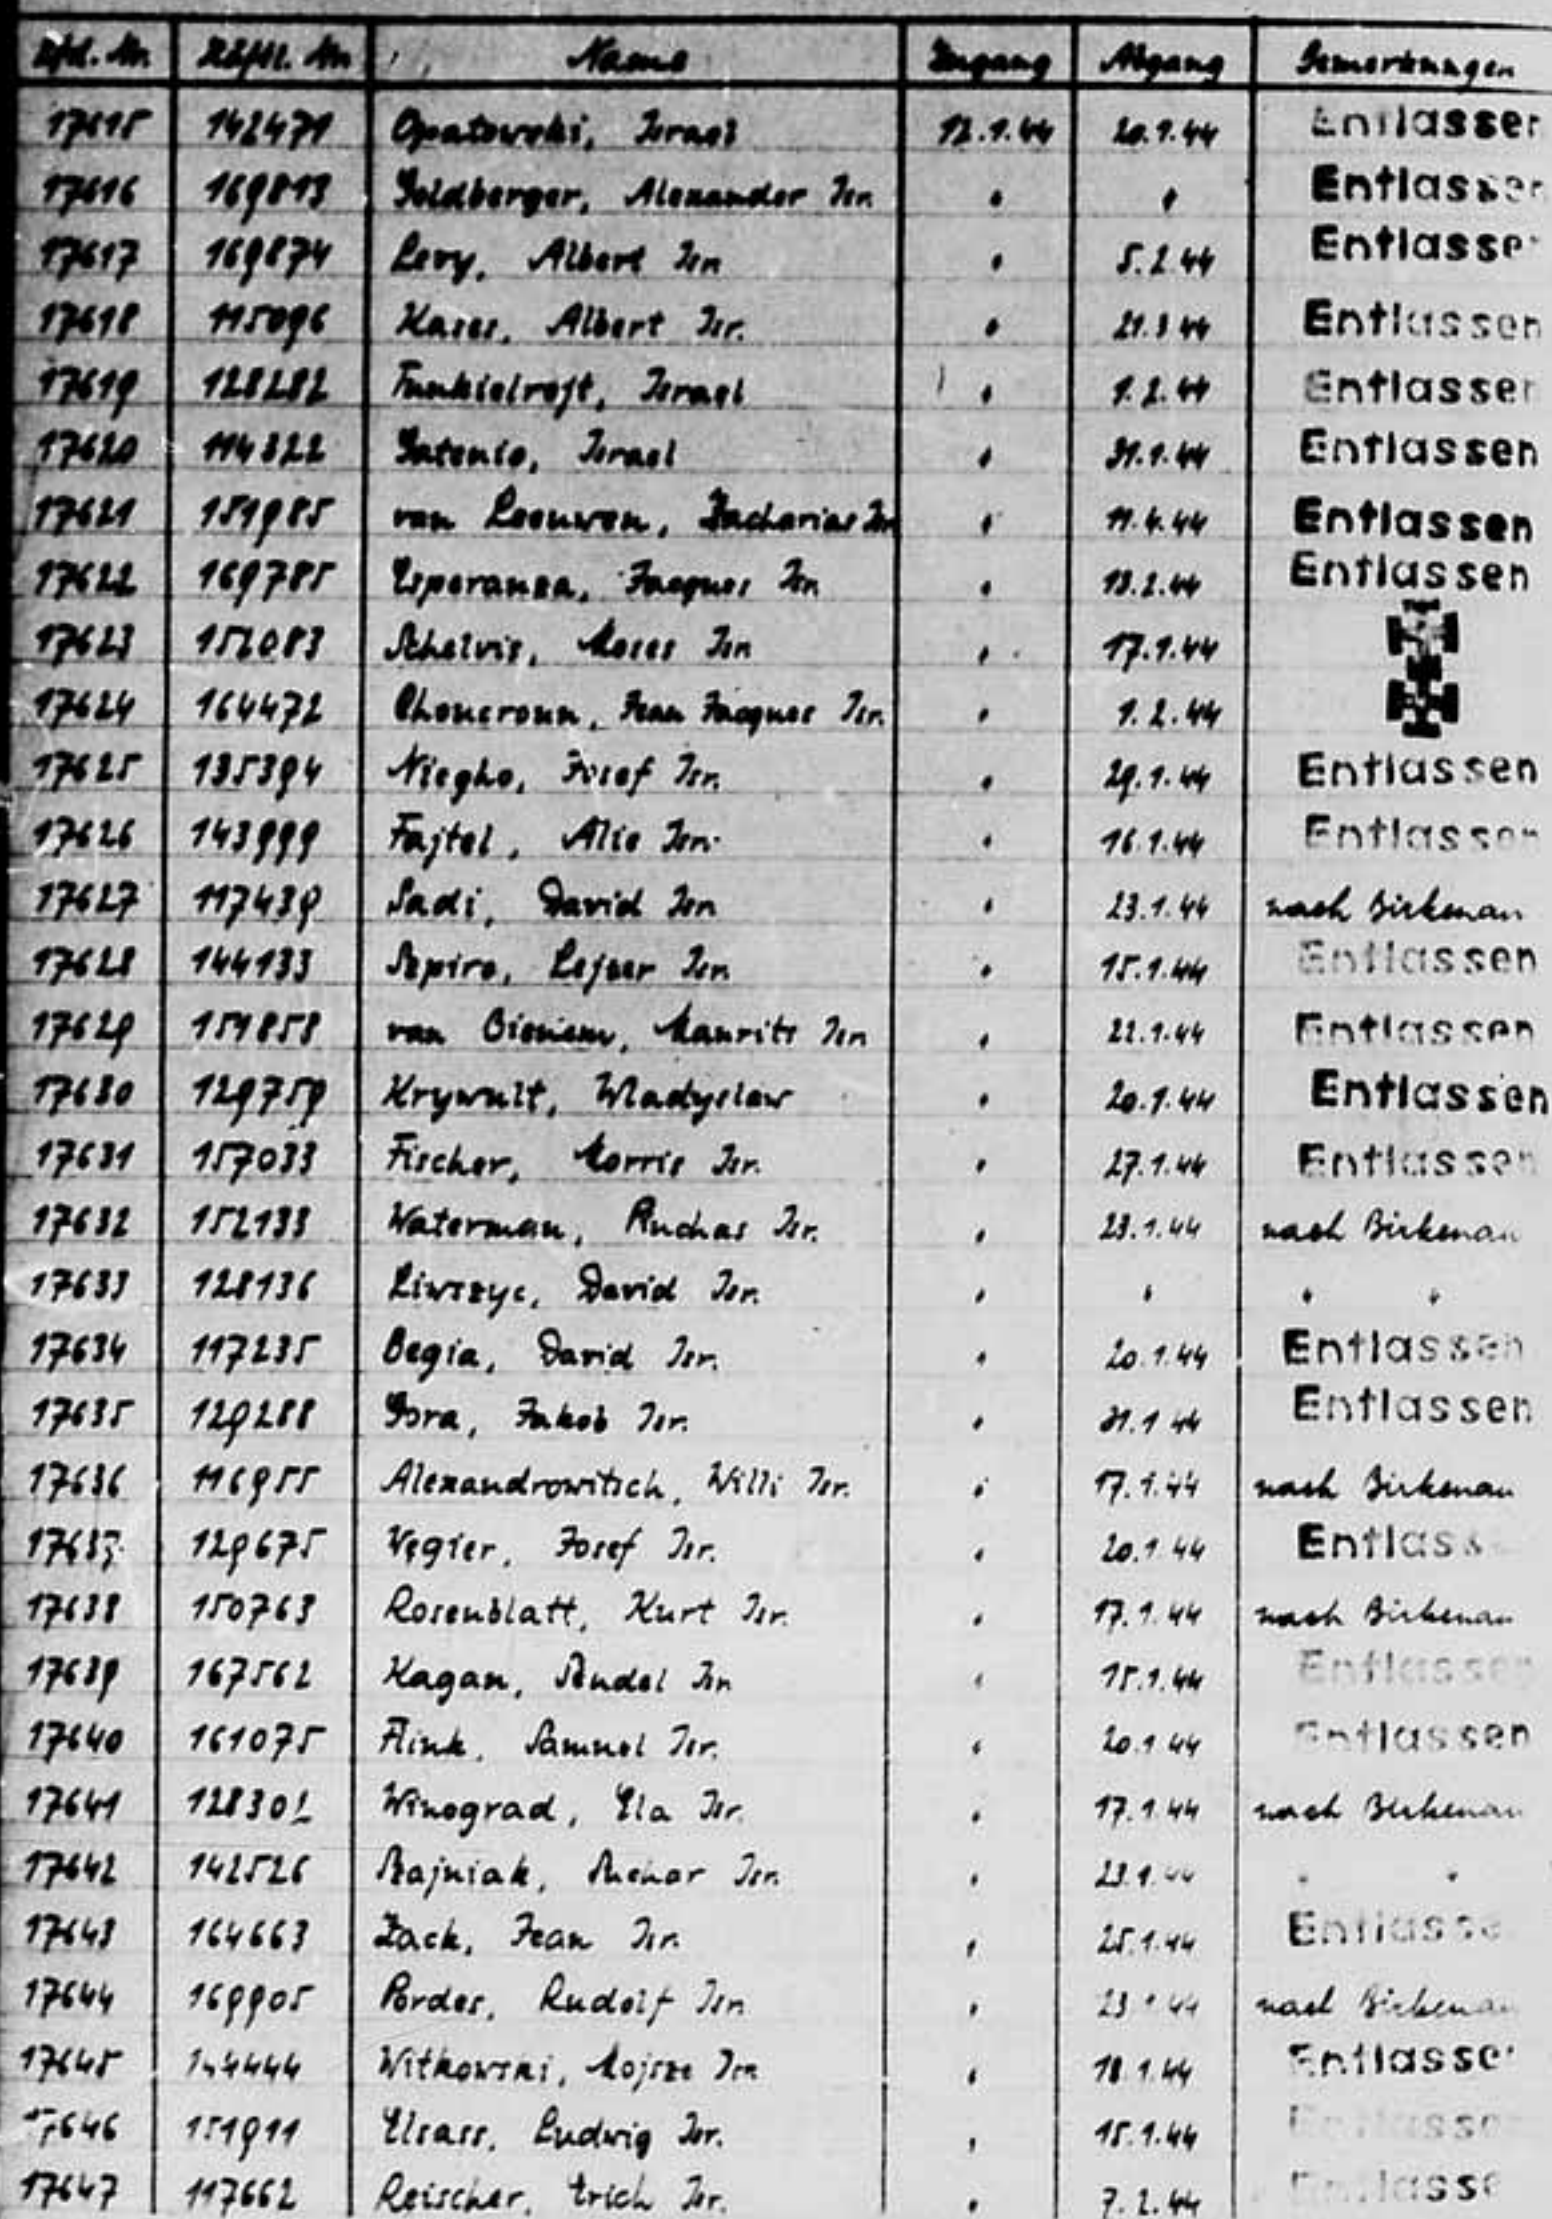 Lfd. Nr. Häftl. Nr. Name Zugang Abgang Bemerkungen
17615 142471 Opatowski, Israel 12.1.44 20.1.44 Entlassen
17616 169813 Goldberger, Alexander Isr. " " Entlassen
17617 169874 Levy, Albert Isr. " 5.2.44 Entlassen
17618 115096 Kases, Albert Isr. " 21.3.44 Entlassen
17619 128282 Israel " 1.2.44 Entlassen
17620 114822 Gatenio, Israel " 31.1.44 Entlassen
17621 151985 van Leeuwen, Zacharias Isr. " 11.4.44 Entlassen
17622 169785 Esperanza, Jacques Isr. " 13.2.44 Entlassen
17623 152083 Schelvis, Moses Isr. " 17.1.44
17624 164472 Choucroun, Jean Jacques Isr. " 1.2.44
17625 135394 Niegho, Josef Isr. " 29.1.44 Entlassen
17626 143999 Fajtel, Alie Isr. " 16.1.44 Entlassen
17627 117439 Sadi, David Isr. " 23.1.44 nach Birkenau
17628 144133 Szpiro, Lejzer Isr. " 15.1.44 Entlassen
17629 151858 van Maurits Isr. " 22.1.44 Entlassen
17630 129759 Krywult, Wladyslaw " 20.1.44 Entlassen
17631 157033 Fischer, Morris Isr. " 27.1.44 Entlassen
17632 152133 Waterman, Isr. " 23.1.44 nach Birkenau
17633 128136 Liwszyc, David Isr. " " " "
17634 117235 Begia, David Isr. " 20.1.44 Entlassen
17635 129288 Gora, Jakob Isr. " 31.1.44 Entlassen
17636 116955 Alexandrowitsch, Willi Isr. " 17.1.44 nach Birkenau
17637 129675 Wegier, Josef Isr. " 20.1.44 Entlassen
17638 150763 Rosenblatt, Kurt Isr. " 17.1.44 nach Birkenau
17639 167562 Kagan, Isr. " 15.1.44 Entlassen
17640 161075 Flink, Samuel Isr. " 20.1.44 Entlassen
17641 128302 Winograd, Ela Isr. " 17.1.44 nach Birkenau
17642 142526 Szajniak, Isr. " 23.1.44 " "
17643 164663 Zack, Jean Isr. " 25.1.44 Entlassen
17644 169905 Pordes, Rudolf Isr. " 23.1.44 nach Birkenau
17645 144444 Witkowski, Mojsze Isr. " 18.1.44 Entlassen
17646 151911 Elsass, Ludwig Isr. " 15.1.44 Entlassen
17647 117662 Reischer, Erich Isr. " 7.2.44 Entlassen